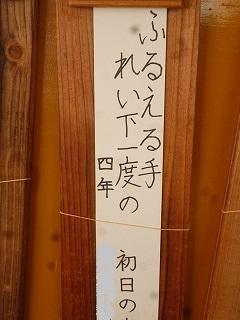 ふるえる手
れい下一度の
初日の
四年